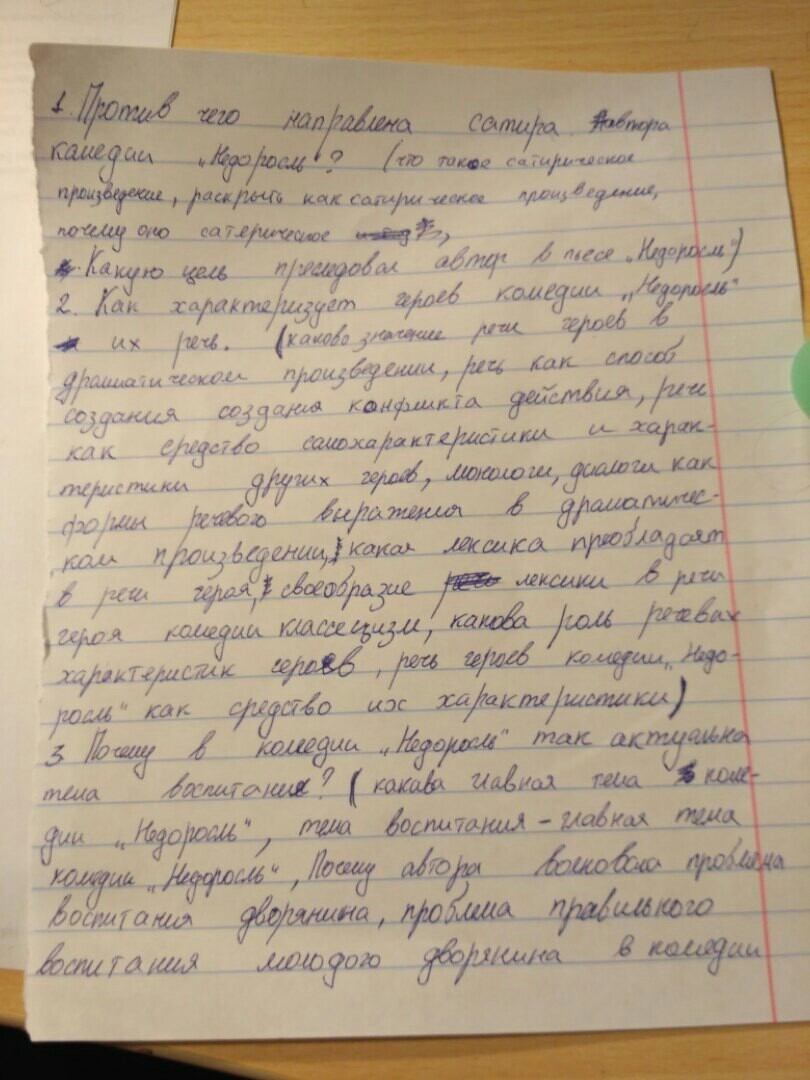 1. Против чего направлена сатира автора
камедии „Недоросль"? (что такое сатирическое
произведение, раскрыть как сатирическое произведение,
почему оно сатерическое,
Какую цель преследовал автор в пьесе „Недоросль")
2. Как характеризует героев комедии „Недоросль"
их речь. (каково значение речи героев в
драматическом произведении, речь как способ
создания создания конфликта действия, речь
как средство самохарактеристики и харак-
теристики других героев, монологи, диалоги как
формы речевого выражения в драматичес-
ком произведении, какая лексика преобладает
в речи героя, своеобразие лексики в речи
героя комедии классецизм, какова роль речевых
характеристик героев, речь героев комедии „Недо-
росль" как средство их характеристики)
3 Почему в комедии „Недоросль" так актуальна
тема воспитание? (какава главная тема коме-
дии „Недоросль", тема воспитания – главная тема
комедии „Недоросль", Почему автора волновала проблема
воспитания дворянина, проблема правильного
воспитания молодого дворянина в комедии